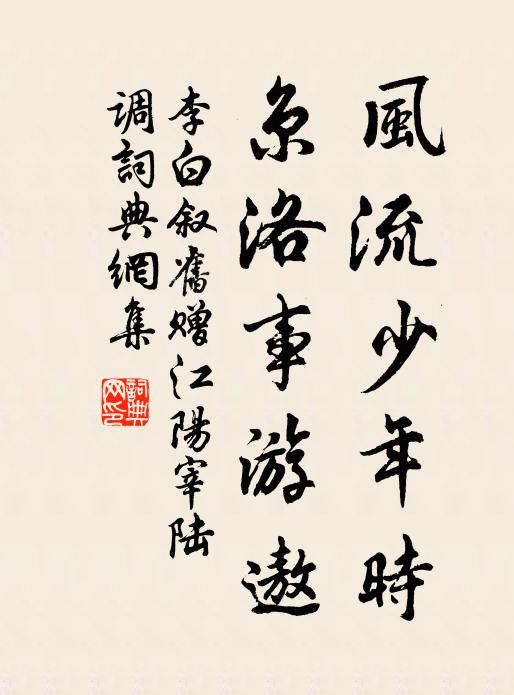 風流少年時
京洛事游遨
李白叙舊赠江陽宰陆
调詞典網集
詞典网印